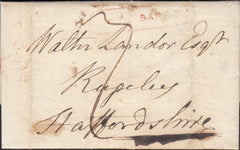 BAR
Walth Landor Esqr
Rugeley
Staffordshire
7